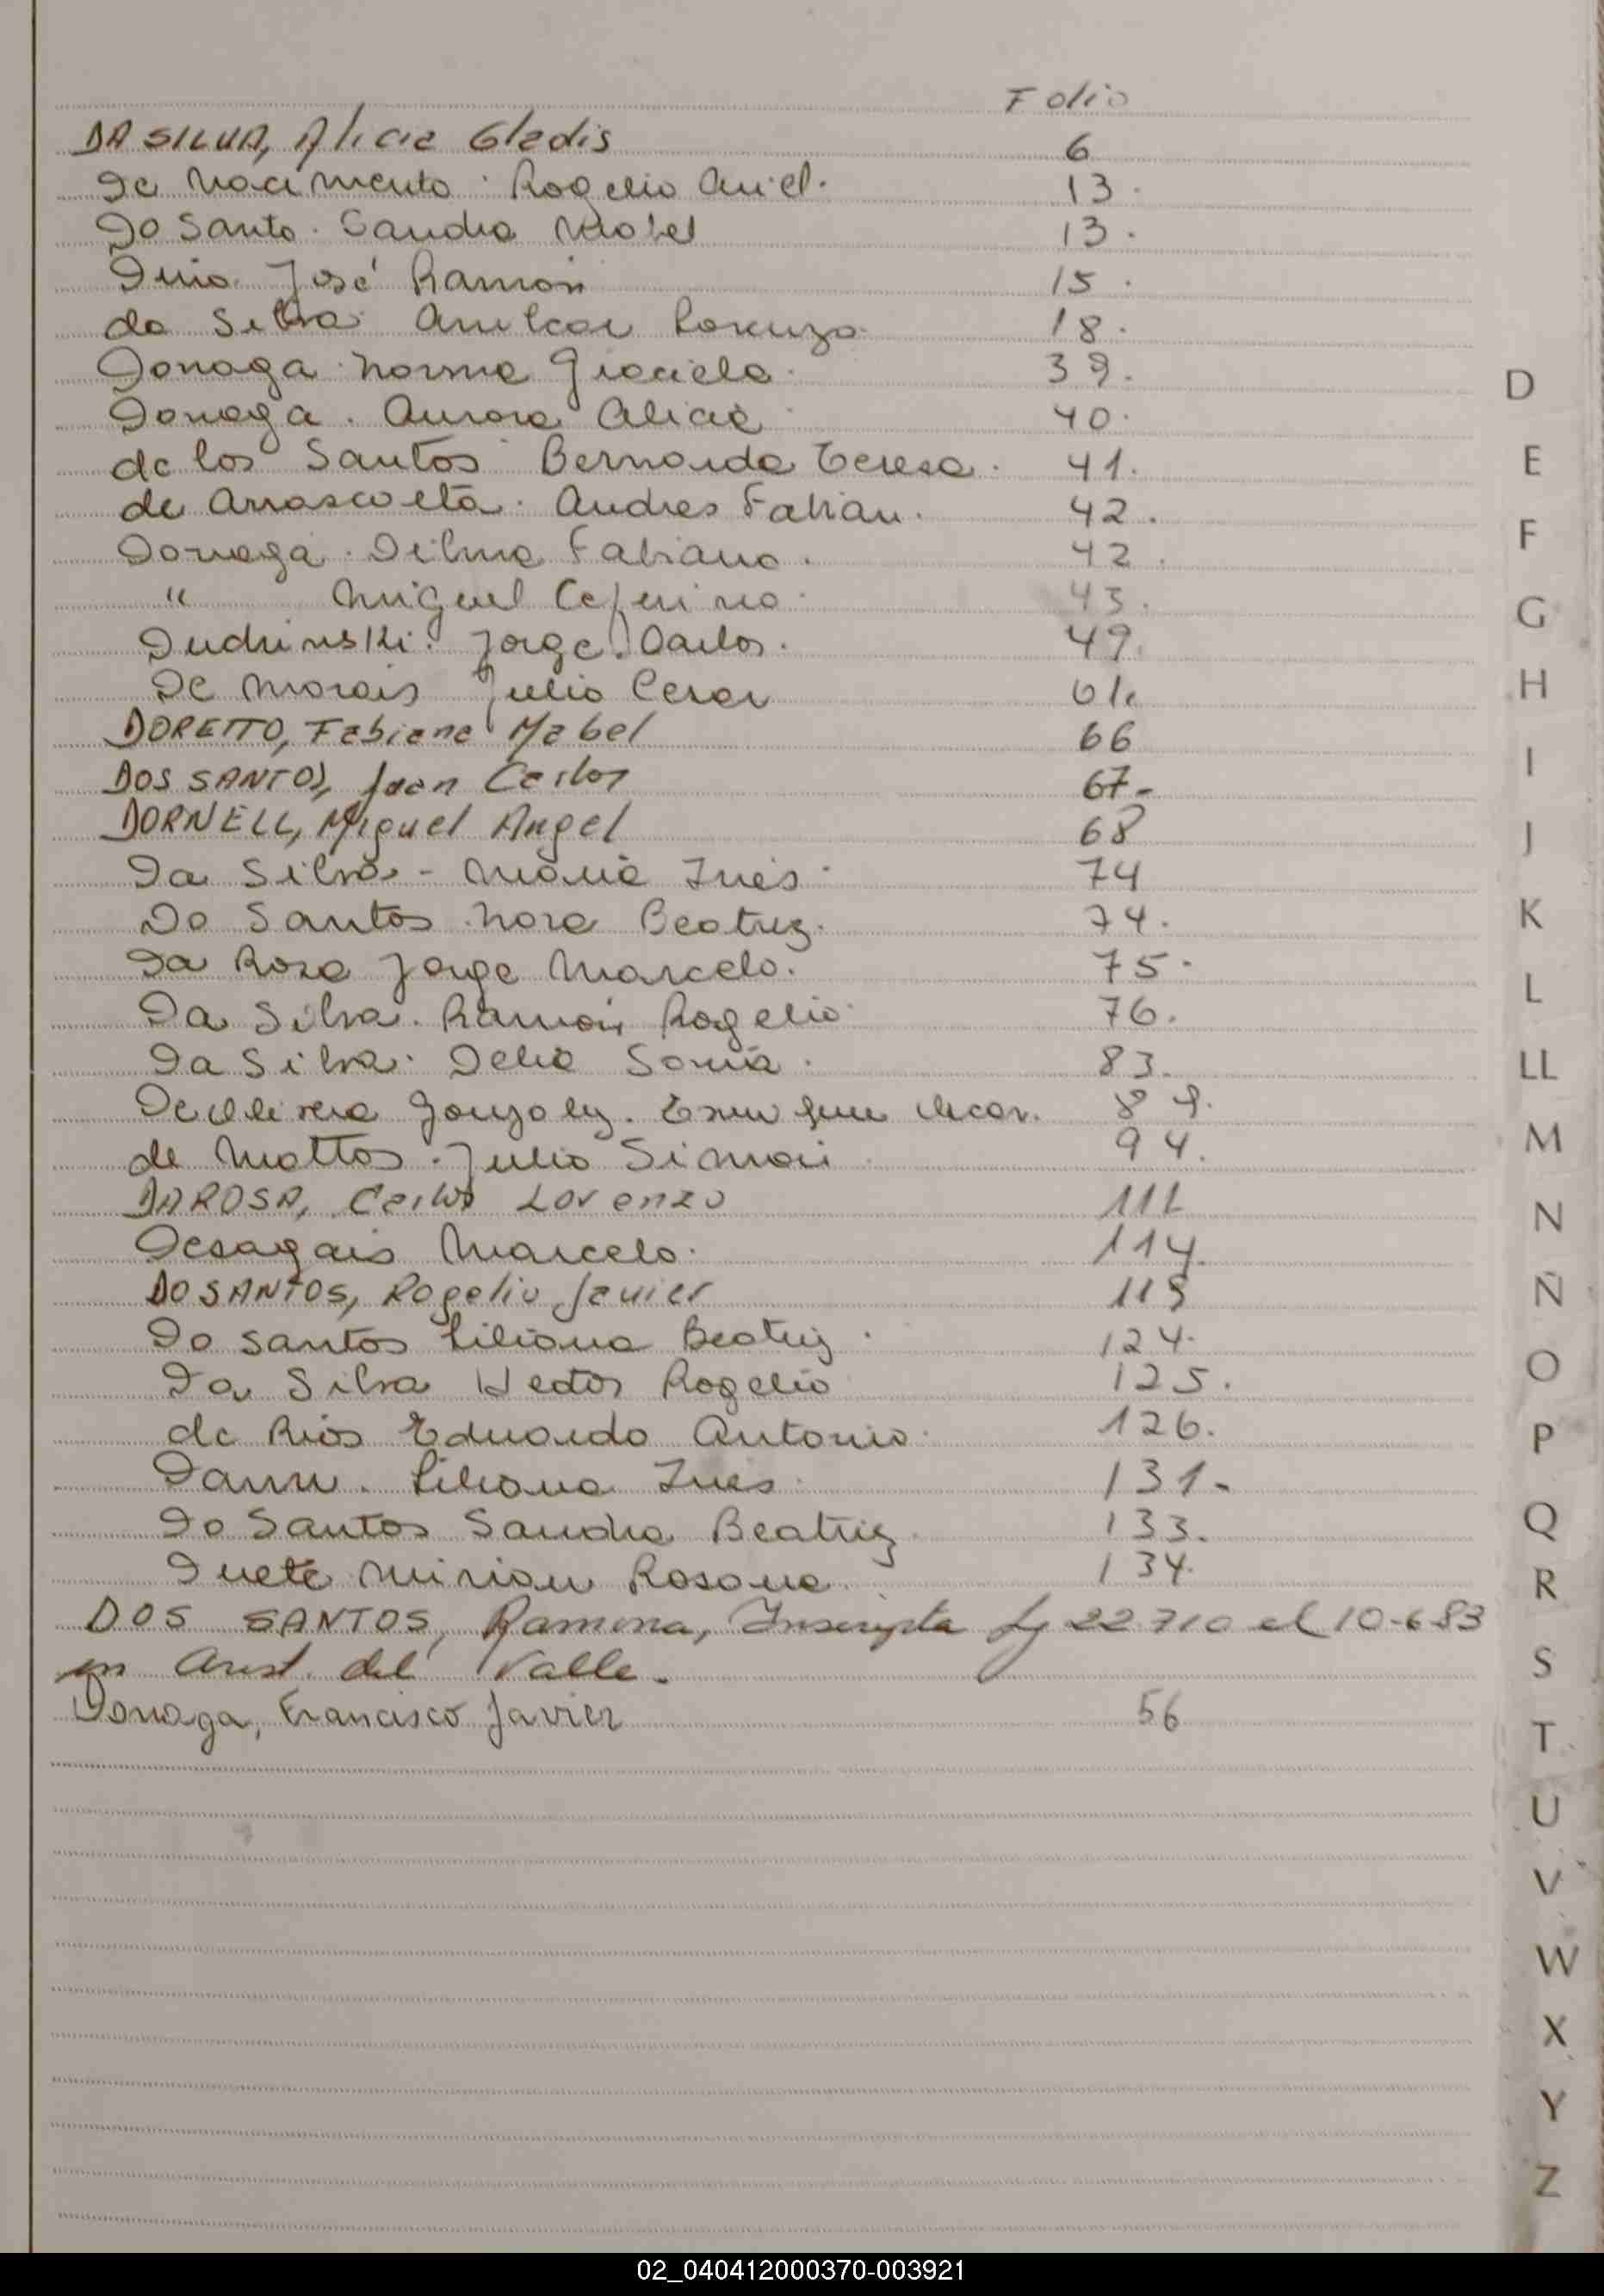 Folio
DA SILVA, Alicia Gladis 6
De Nacimento. Rogelio Ariel. 13.
Do Santo. Sandra Mabel 13.
José Ramón 15.
da Silva. Amilcar Lorenzo. 18.
Dornaga. Norma Graciela. 39.
Dornaga. Aurora Alicia. 40.
de los Santos Bernarda Teresa. 41.
de Arrascaeta. Andres Fabian. 42.
Dornaga. Dilma Fabiana. 42.
" Miguel Ceferino. 43.
Dudzinski. Jorge Carlos. 49.
De Morais Julio Cesar 61.
DORETTO, Fabiana Mabel 66
DOS SANTOS, Juan Carlos 67-
DORNELL, Miguel Angel 68
Da Silva - Maria Inés. 74
Do Santos Nora Beatriz. 74.
Da Rosa Jorge Marcelo. 75.
Da Silva. Ramón Rogelio. 76.
Da Silva. Delia Sonia. 83.
De Olivera Gonzalez. 89.
de Mattos. Julio Simon. 94.
DA ROSA, Carlos Lorenzo 112
Desagais Marcelo. 114.
DO SANTOS, Rogelio Javier 115
Do Santos Liliana Beatriz. 124.
Da Silva Hector Rogelio 125.
de Rios Eduardo Antonio. 126.
Liliana Ines. 131-
Do Santos Sandra Beatriz. 133.
Duete Mirian Rosana. 134.
DOS SANTOS, Ramona, Inscripta 22.710 el 10-6-83
en Arist. del Valle.
Dornaga, Francisco Javier 56
D
E
F
G
H
I
J
K
L
LL
M
N
Ñ
O
P
Q
R
S
T
U
V
W
X
Y
Z
02_040412000370-003921